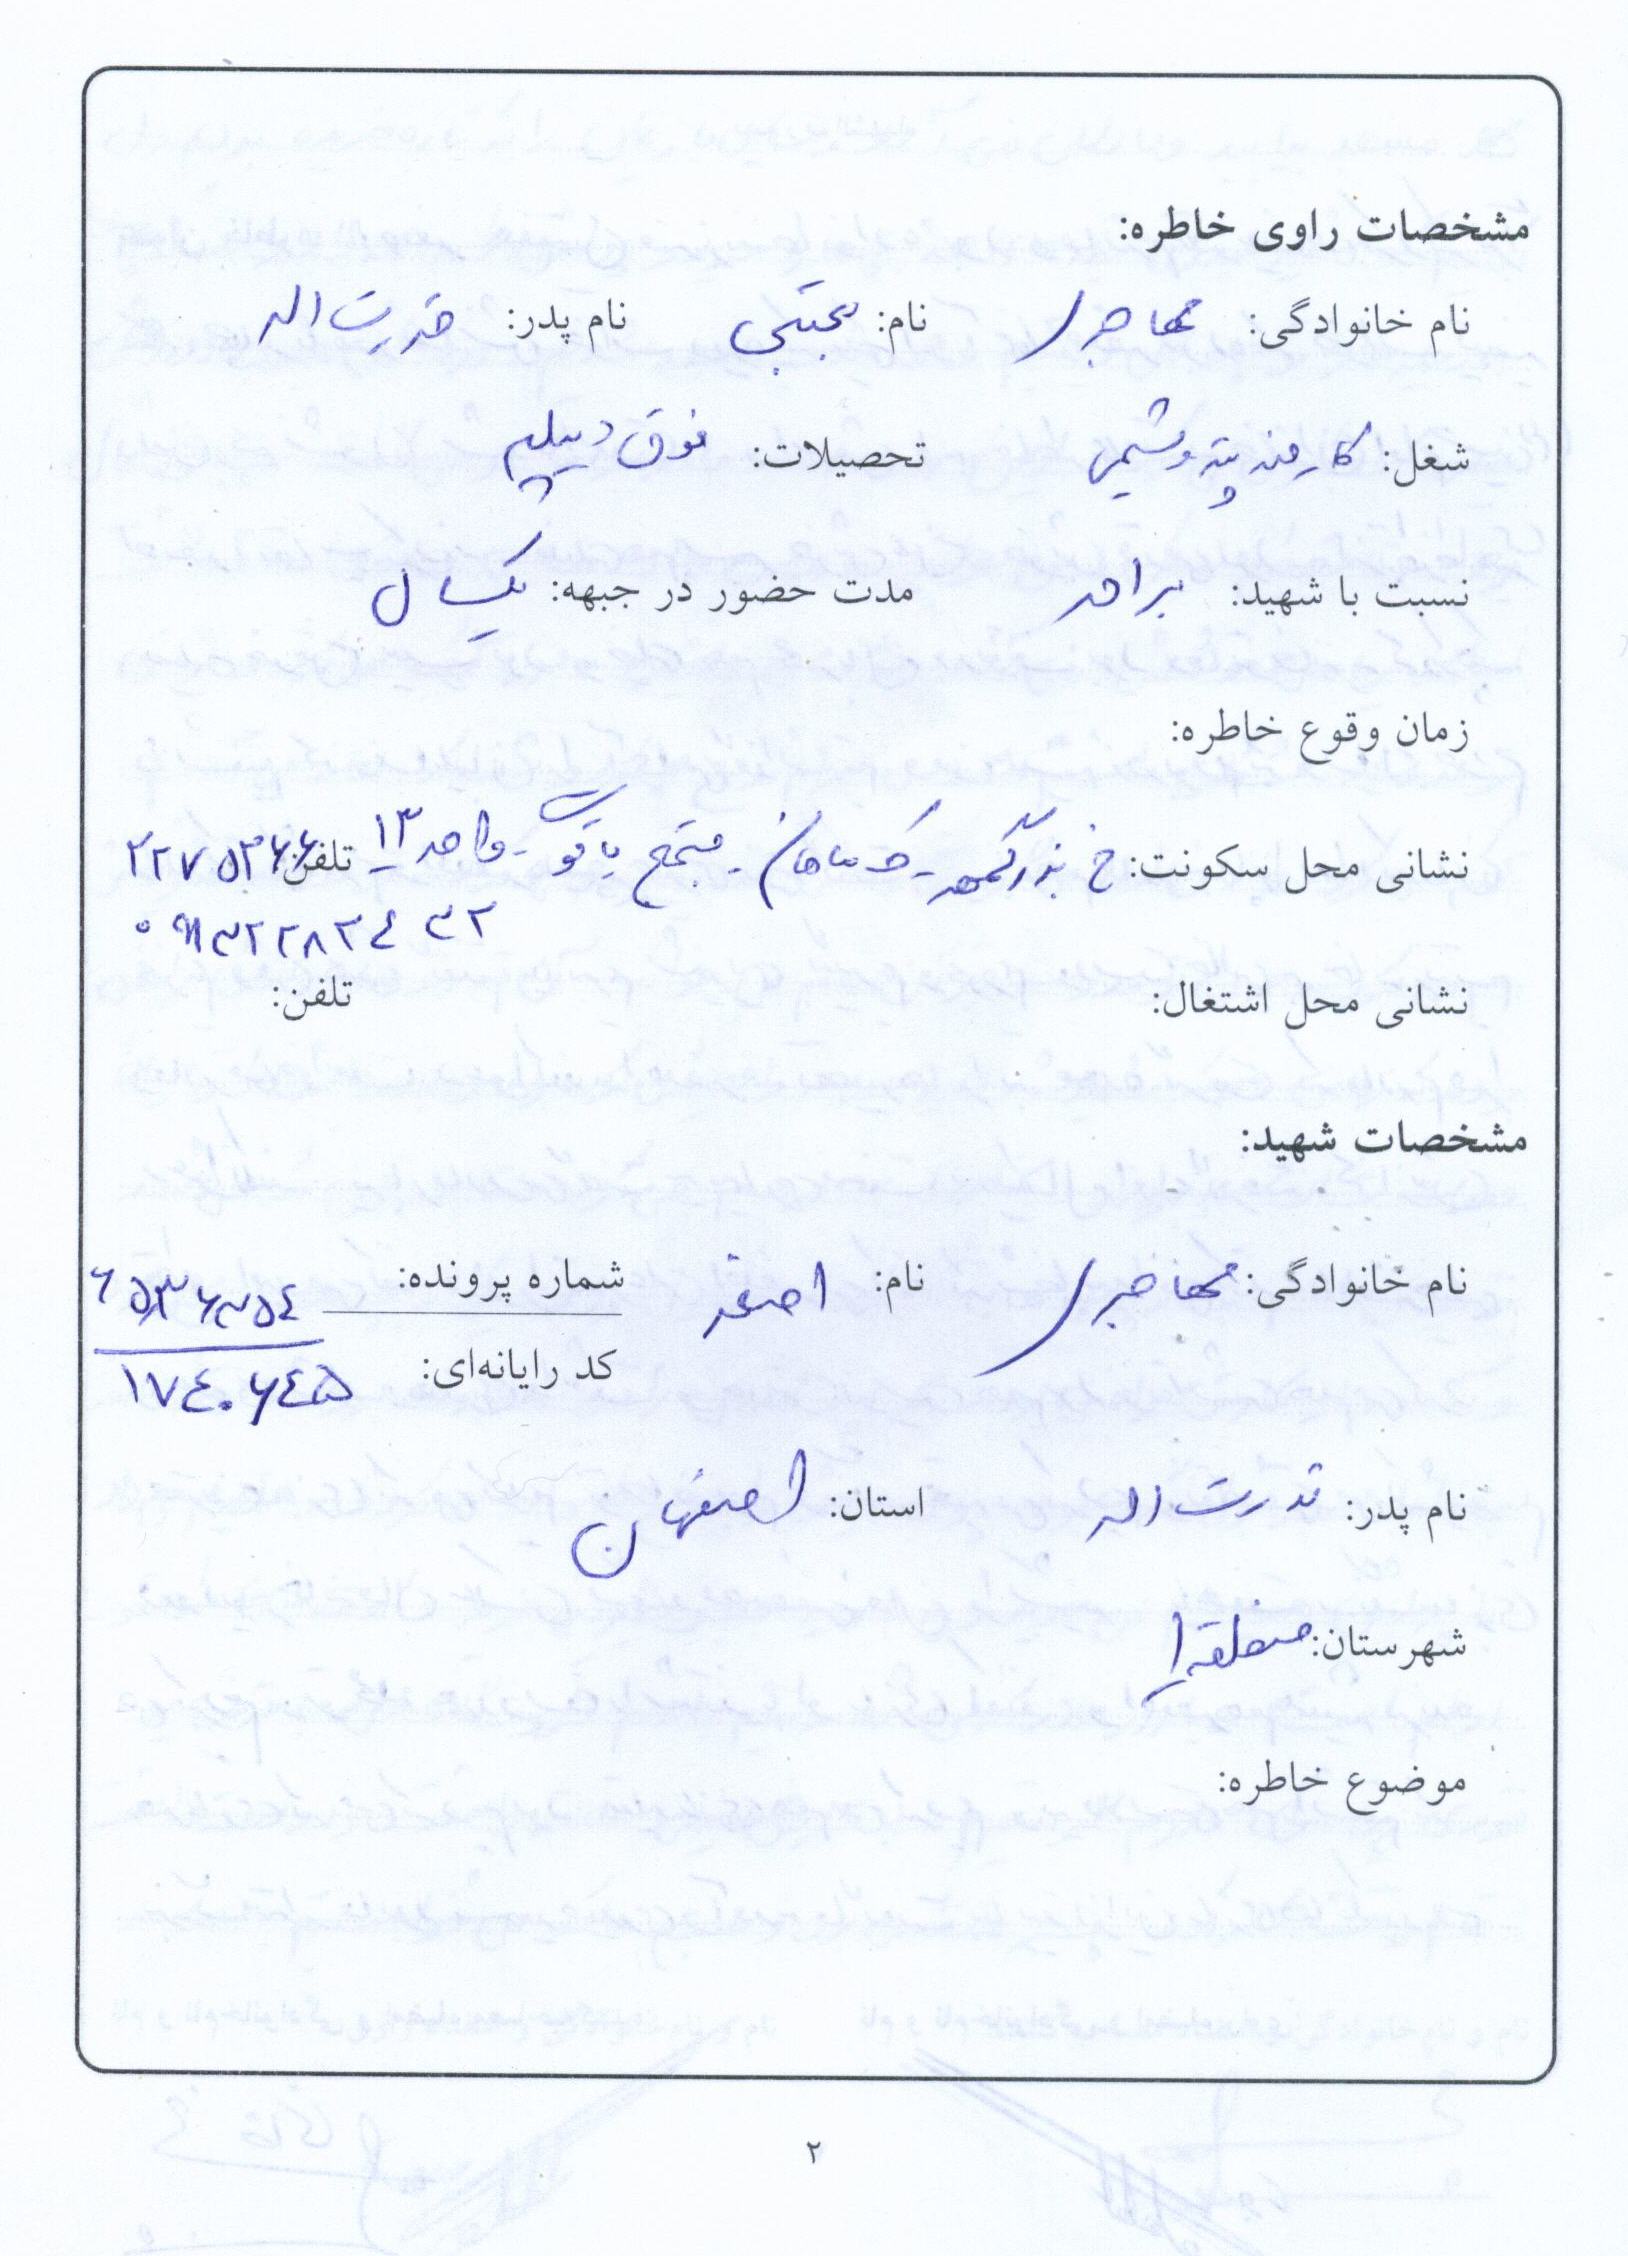 مشخصات راوی خاطره:
نام خانوادگی: مهاجری نام: مجتبی نام پدر: قدرت اله
شغل: کارمند پتروشیمی تحصیلات: فوق دیپلم
نسبت با شهید: برادر مدت حضور در جبهه: یکسال
زمان وقوع خاطره:
نشانی محل سکونت: خ بزرگمهر - ک سامان - مجتمع یاقوت - واحد ۱۳ تلفن:
۰۹۱۳۲۲۸۲۴۳۲
نشانی محل اشتغال: تلفن:
مشخصات شهید:
نام خانوادگی: مهاجری نام: اصغر شماره پرونده:
کد رایانه‌ای: ۱۷۴۰۶۴۵
نام پدر: قدرت اله استان: اصفهان
شهرستان: منطقه ۱
موضوع خاطره:
۲